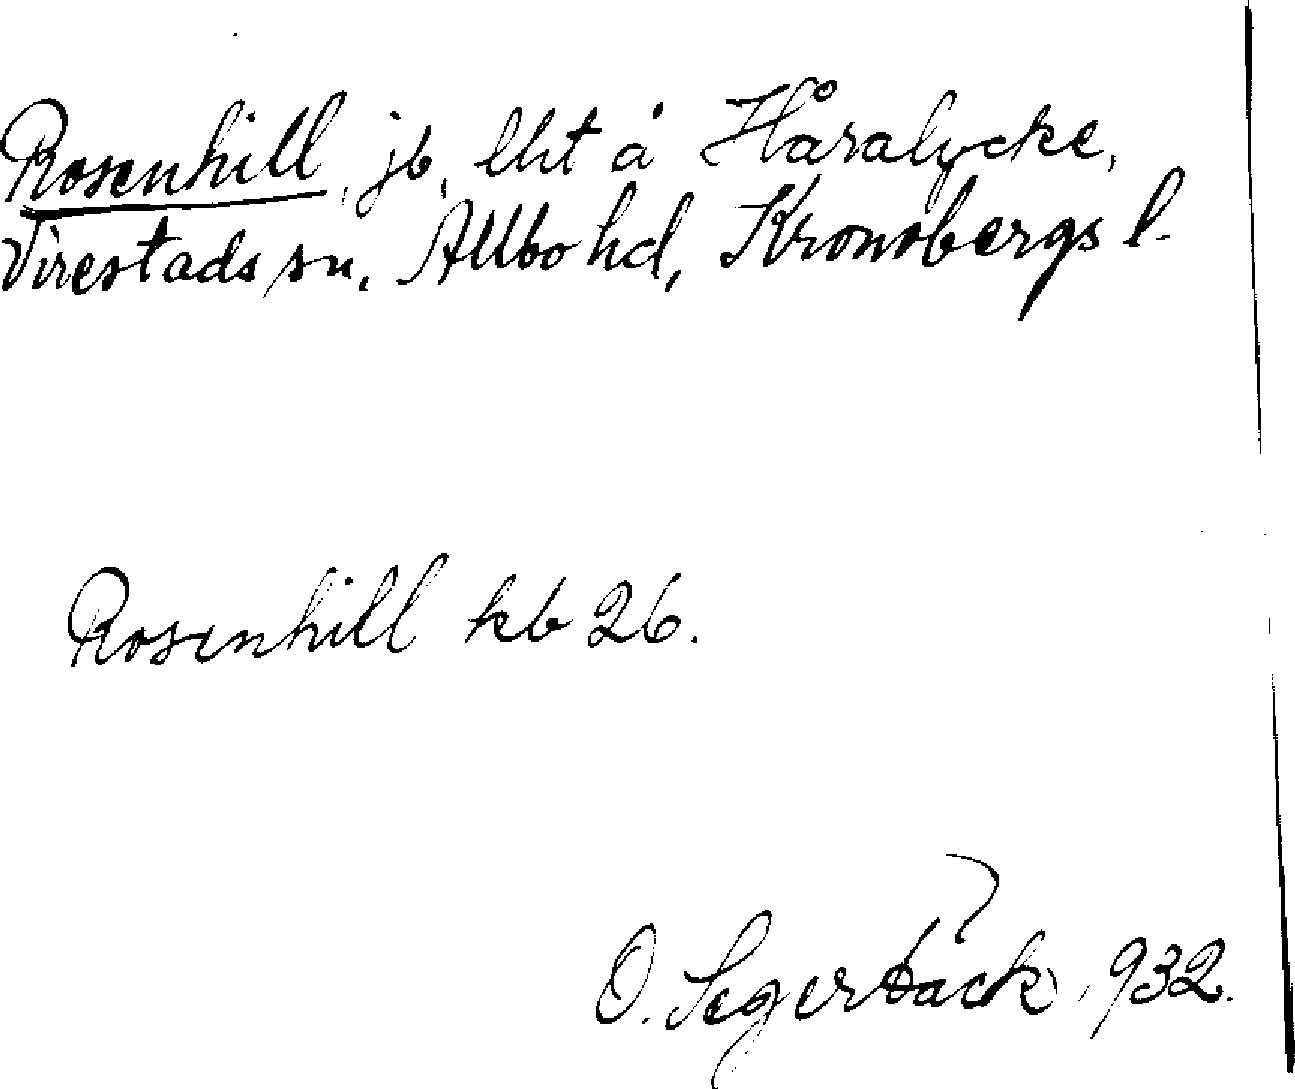 Rosenhill, jb, lht å Håralycke,
Virestads sn, Allbo hd, Kronobergs l.
Rosenhill kb 26.
O. Segerbäck, 932.